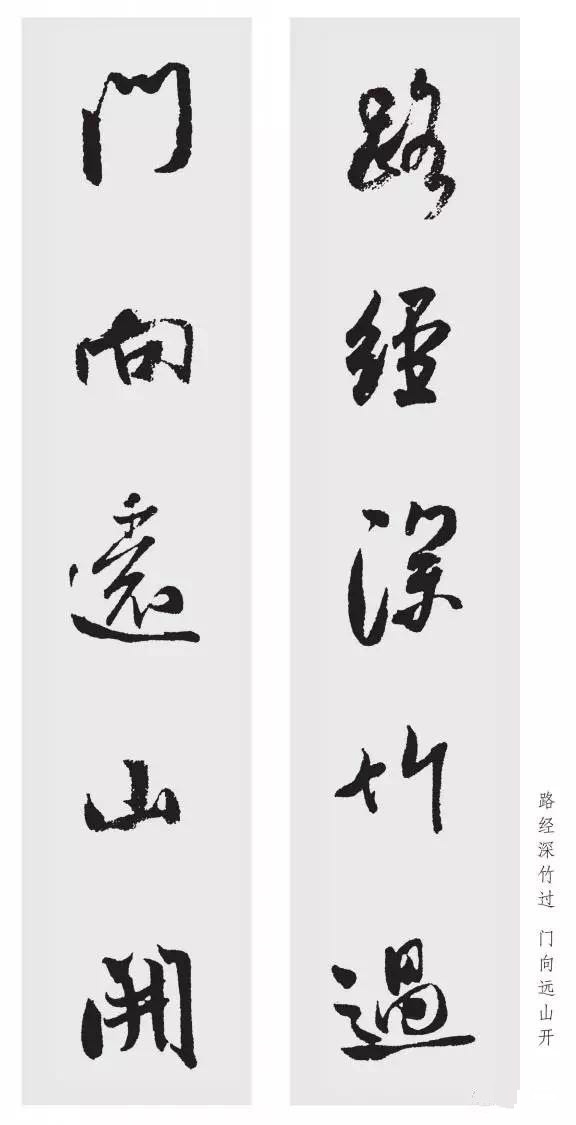 路經深竹過
門向遠山開
路经深竹过 门向远山开